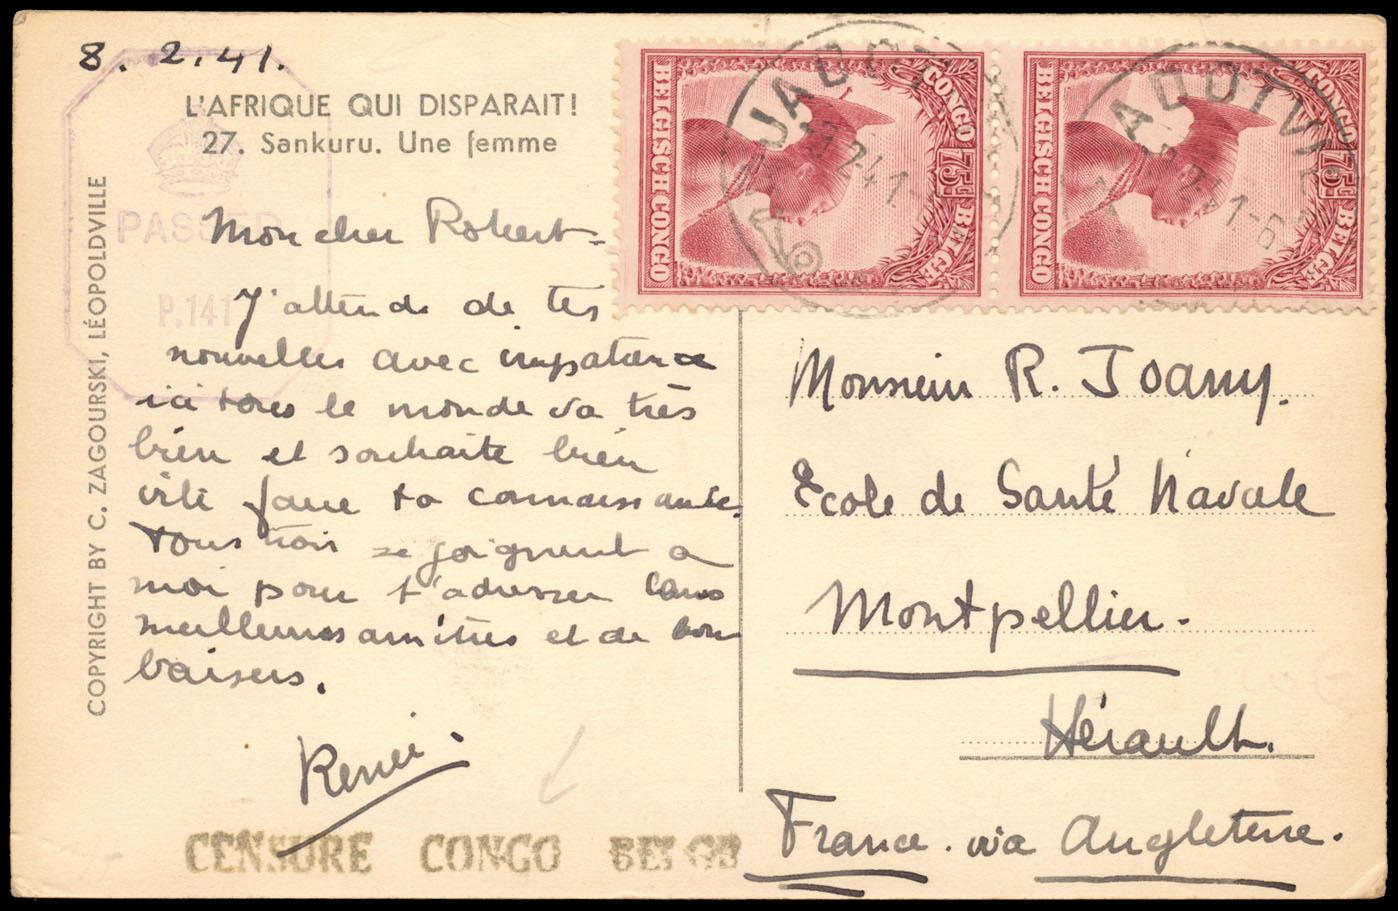 8. 2. 41.
L'AFRIQUE QUI DISPARAIT!
27. Sankuru. Une femme
COPYRIGHT BY C. ZAGOURSKI, LÉOPOLDVILLE
PASSED
P.141
Mon cher Robert -
J'attends de tes
nouvelles avec impatience
ici tous le monde va très
bien et souhaite bien
vite faire ta connaissance.
Tous trois se joignent a
moi pour t'adresser leurs
meilleures amitiés et de bons
baisers.
Renée.
CENSURE CONGO BELGE
CONGO BELGE
75c
BELGISCH CONGO
JADOTVI
2 41
CONGO BELGE
75c
BELGISCH CONGO
ADOTVI
Monsieur R. Joany.
Ecole de Santé Navale
Montpellier.
Hérault.
France. via Angleterre.